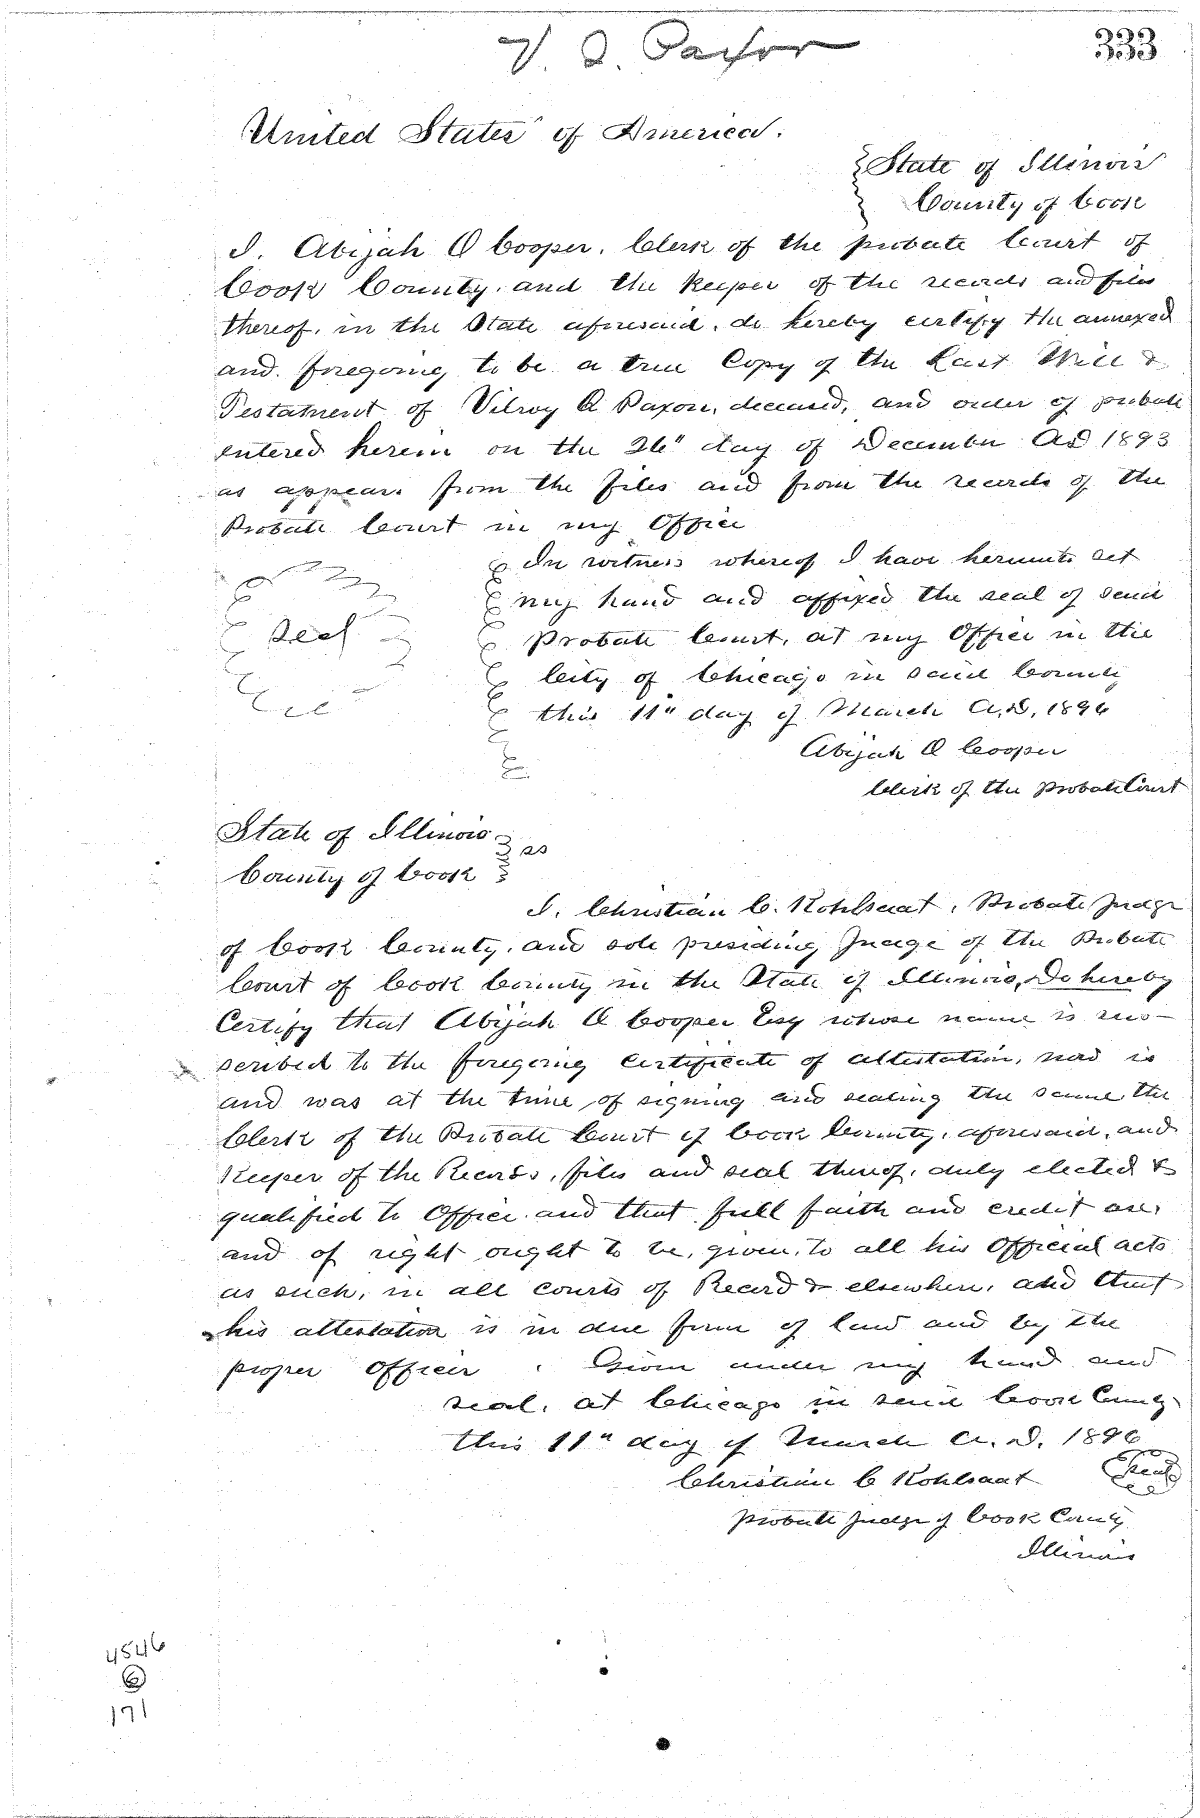 V. Q. Paxon
333
United States of America.
State of Illinois
County of Cook
I. Abijah O Cooper. Clerk of the probate Court of
Cook County. and the Keeper of the records and files
thereof. in the State aforesaid. do hereby certify the annexed
and foregoing to be a true Copy of the Last Will &
Testament of Vilroy Q Paxon, deceased, and order of probate
entered herein on the 26" day of December AD 1893
as appears from the files and from the records of the
Probate Court in my Office
In witness whereof I have hereunto set
my hand and affixed the seal of said
Seal
Probate Court, at my Office in the
City of Chicago in said County
this 11" day of March A.D. 1896
Abijah O Cooper
Clerk of the Probate Court
State of Illinois
ss
County of Cook
I. Christian C. Kohlsaat, Probate Judge
of Cook County. and sole presiding Judge of the Probate
Court of Cook County in the State of Illinois, Do hereby
Certify that Abijah O Cooper Esq whose name is sub-
scribed to the foregoing certificate of attestation, now is
and was at the time of signing and sealing the same the
Clerk of the Probate Court of Cook County, aforesaid, and
Keeper of the Records, files and seal thereof, duly elected &
qualified to Office. and that full faith and credit are,
and of right ought to be, given, to all his Official acts
as such, in all courts of Record & elsewhere, and that
his attestation is in due form of law and by the
proper Officer. Given under my hand and
seal, at Chicago in said Cook County
this 11" day of March A.D. 1896
Christian C Kohlsaat
Seal
Probate Judge of Cook County
Illinois
4546
6
171